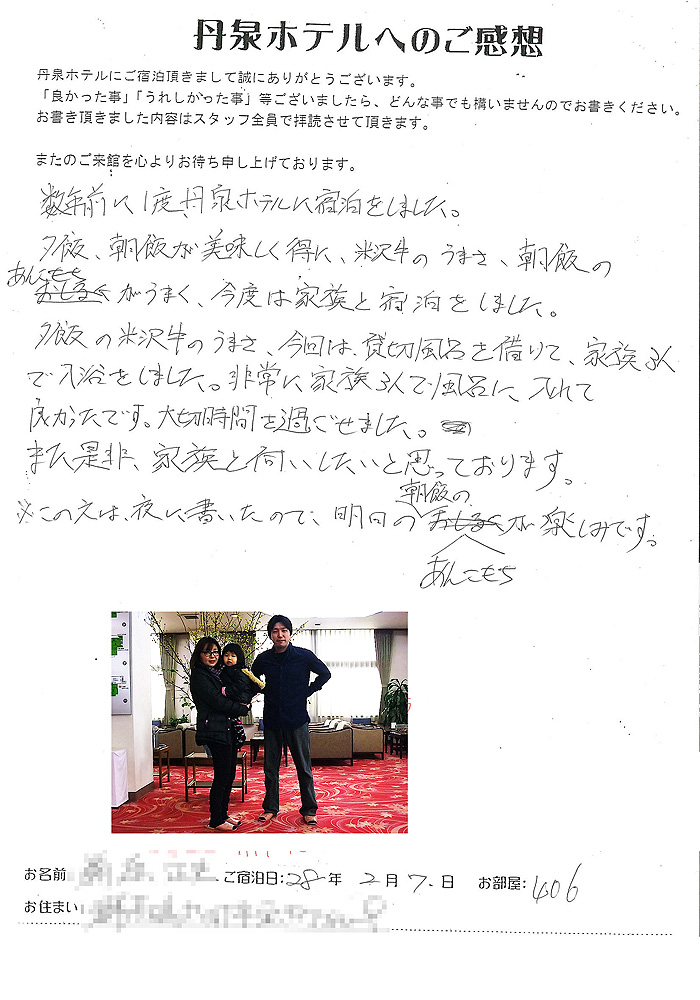 丹泉ホテルへのご感想
丹泉ホテルにご宿泊頂きまして誠にありがとうございます。
「良かった事」「うれしかった事」等ございましたら、どんな事でも構いませんのでお書きください。
お書き頂きました内容はスタッフ全員で拝読させて頂きます。
またのご来館を心よりお待ち申し上げております。
数年前に1度、丹泉ホテルに宿泊をしました。
夕飯、朝飯が美味しく得に、米沢牛のうまさ、朝飯の
あんこもち
おしるこがうまく、今度は家族と宿泊をしました。
夕飯の米沢牛のうまさ、今回は、貸切風呂を借りて、家族3人
で入浴をしました。非常に家族3人で風呂に、入れて
良かったです。大切時間を過ごせました。
また是非、家族と伺いしたいと思っております。
朝飯の
※この文は、夜に書いたので、明日のおしるこが楽しみです。
あんこもち
お名前
ご宿泊日:28年 2月 7日 お部屋:406
お住まい